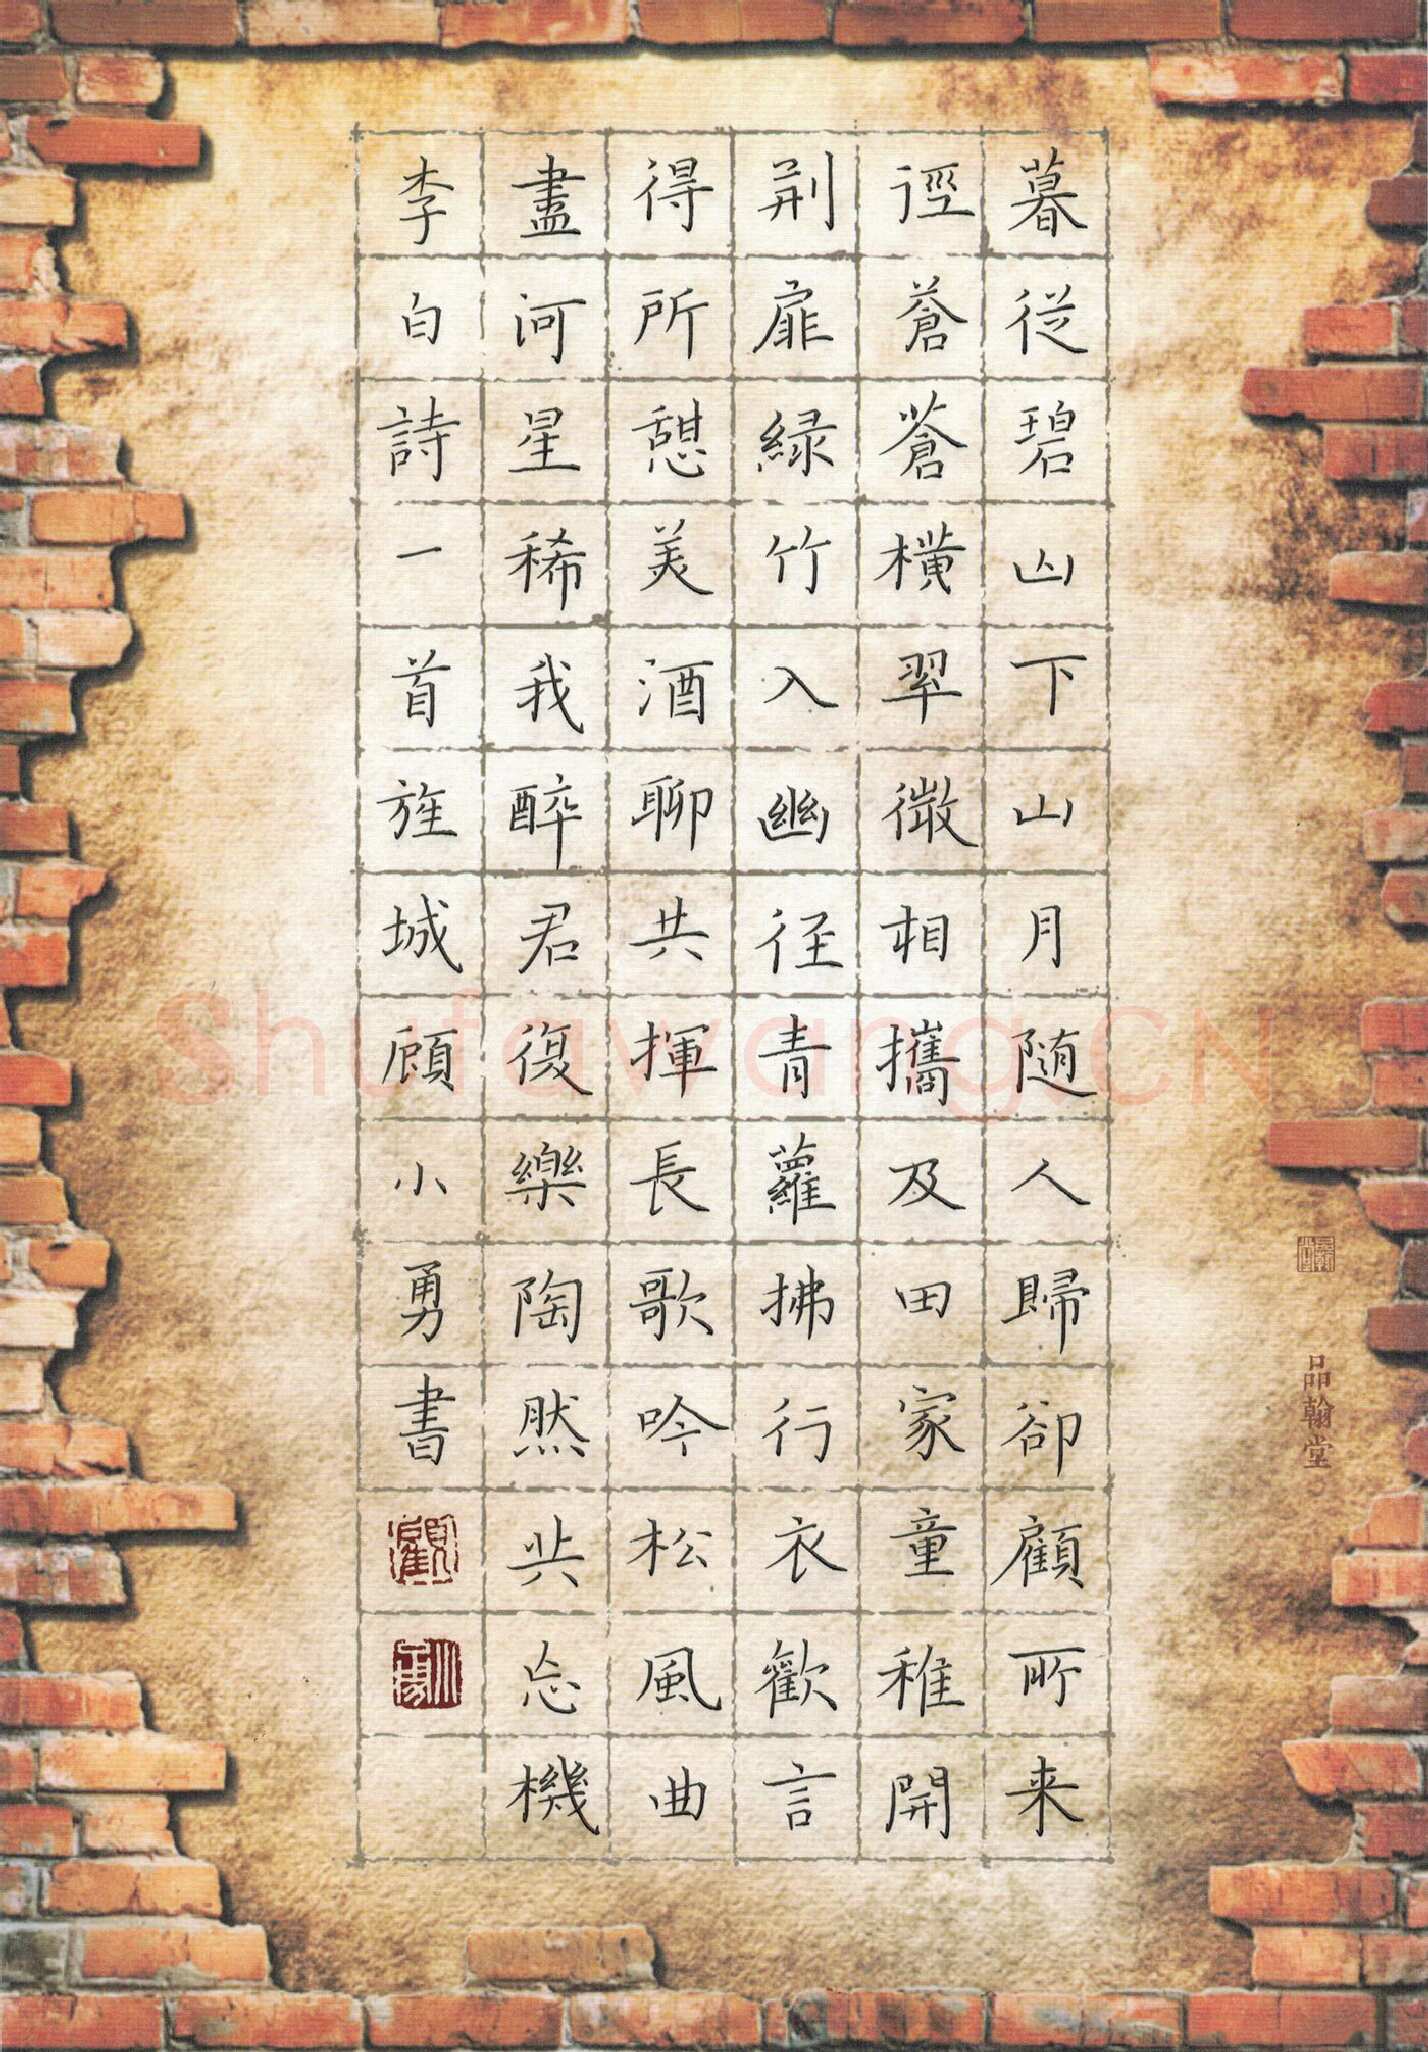 暮從碧山下山月随人歸卻顧所来
徑蒼蒼横翠微相攜及田家童稚開
荆扉緑竹入幽径青蘿拂行衣歡言
得所憩美酒聊共揮長歌吟松風曲
盡河星稀我醉君復樂陶然共忘機
李白詩一首旌城顧小勇書
顧
小勇
品翰堂
Shufawang.CN